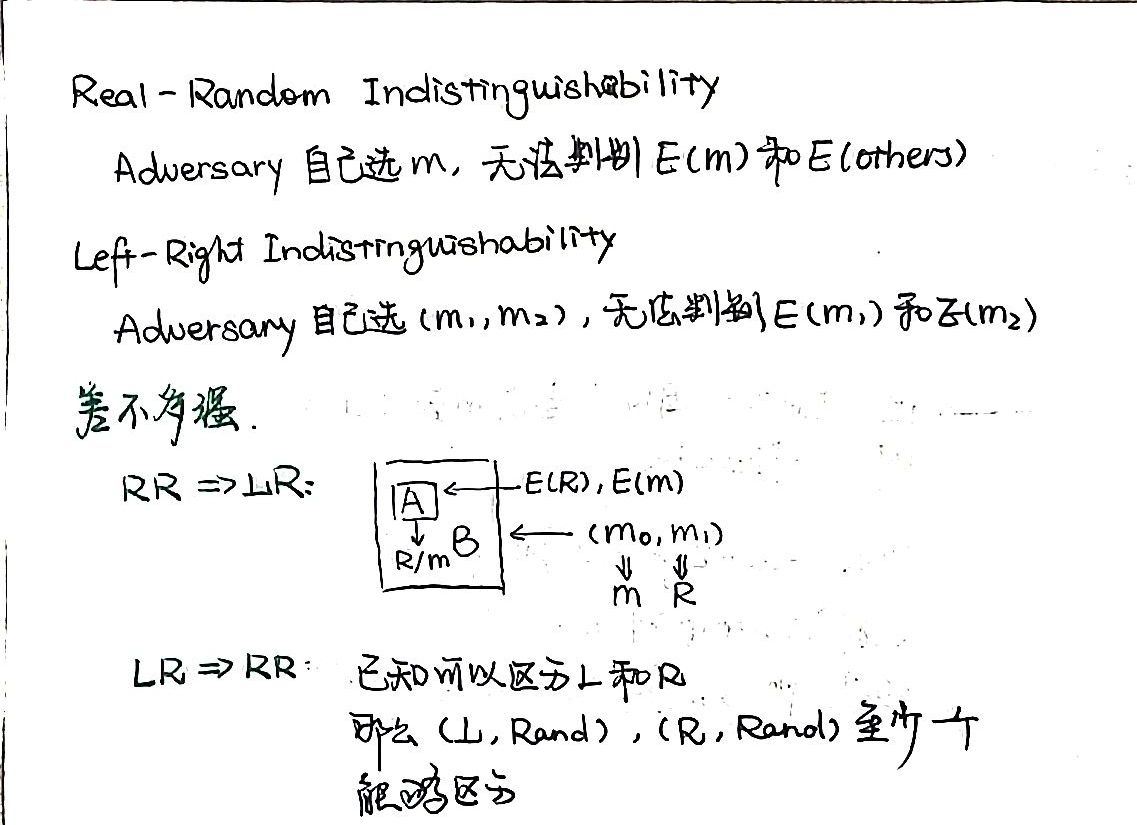 Real-Random Indistinguishability
Adversary 自己选 m, 无法判别 E(m) 和 E(others)
Left-Right Indistinguishability
Adversary 自己选 (m₁, m₂), 无法判别 E(m₁) 和 E(m₂)
差不多强.
RR ⇒ LR:
A ← E(R), E(m)
↓
R/m B ← (m₀, m₁)
⇓ ⇓
m R
LR ⇒ RR: 已知可以区分 L 和 R
那么 (L, Rand), (R, Rand) 至少一个
能够区分